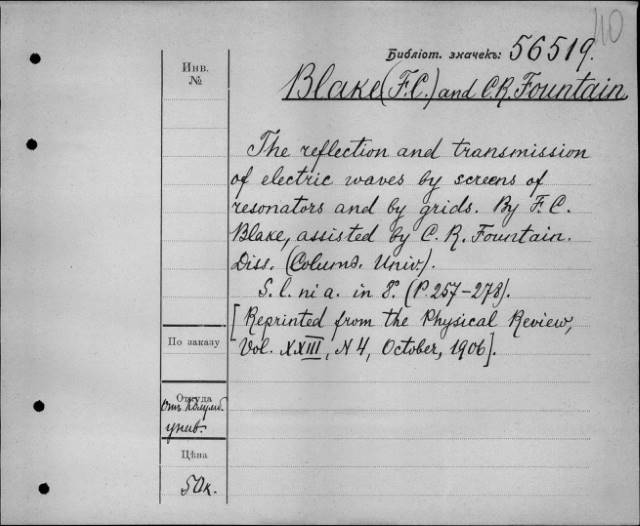 110
Библіот. значекъ: 56519.
Инв.
№
Blake (F.C.) and C.R. Fountain
The reflection and transmission
of electric waves by screens of
resonators and by grids. By F. C.
Blake, assisted by C. R. Fountain.
Diss. (Columb. Univ.).
S. l. ni a. in 8°. (P. 257-278).
[Reprinted from the Physical Review,
Vol. XXIII, N 4, October, 1906].
По заказу
Откуда
Отъ Колумб.
унив.
Цѣна
50 к.